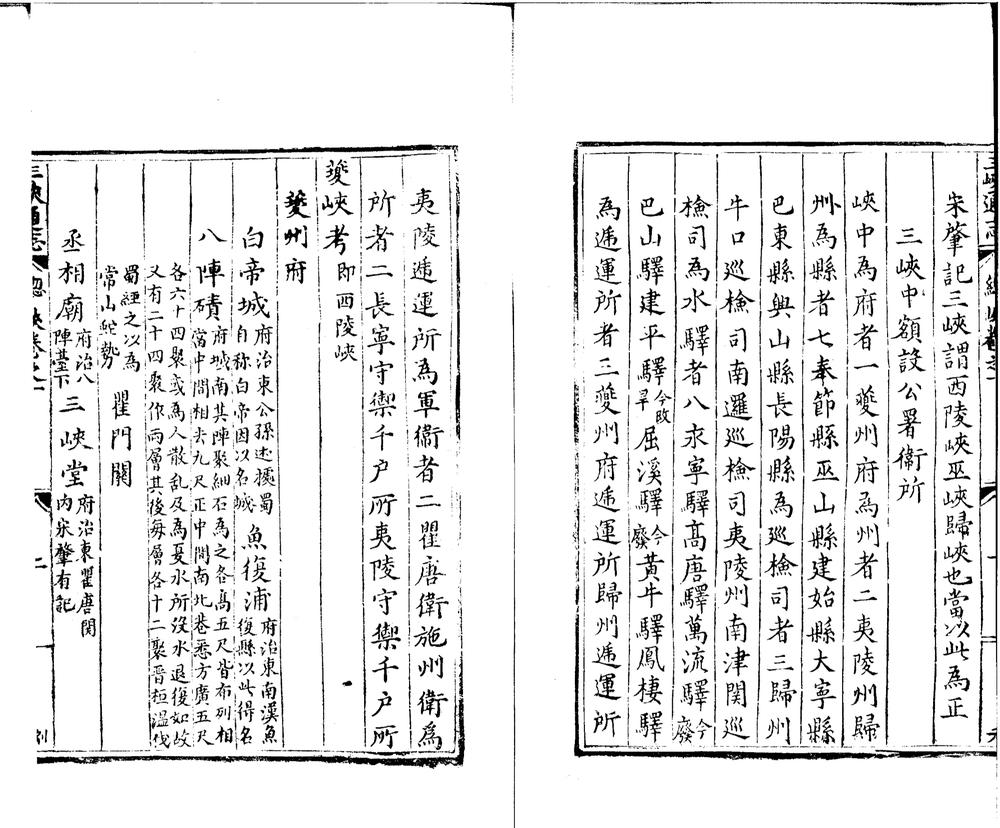 宋肇記三峽謂西陵峽巫峽歸峽也當以此為正
三峽中額設公署衛所
峽中為府者一夔州府為州者二夷陵州歸
州為縣者七奉節縣巫山縣建始縣大寧縣
巴東縣興山縣長陽縣為巡檢司者三歸州
牛口巡檢司南邏巡檢司夷陵州南津関巡
檢司為水驛者八永寧驛髙唐驛萬流驛今廢
巴山驛建平驛今改旱屈溪驛今廢黃牛驛鳳棲驛
為遞運所者三夔州府遞運所歸州遞運所
夷陵遞運所為軍衞者二瞿唐衛施州衛為
所者二長寧守禦千户所夷陵守禦千户所
夔峽考即西陵峽
夔州府
白帝城府治東公孫述據蜀自称白帝因以名城魚復浦府治東南漢魚復縣以此得名
八陣磧府城南其陣聚細石為之各髙五尺皆布列相當中間相去九尺正中間南北巷悉方廣五尺
各六十四聚或為人散乱及為夏水所沒水退復如故又有二十四聚作兩層其後每層各十二聚晋桓溫伐
蜀經之以為常山蛇勢瞿門關
丞相廟府治八陣臺下三峽堂府治東瞿唐関内宋肇有記
三峽通志